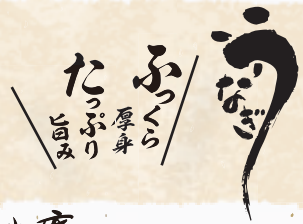 うなぎ
ふっくら
厚身
たっぷり
旨み